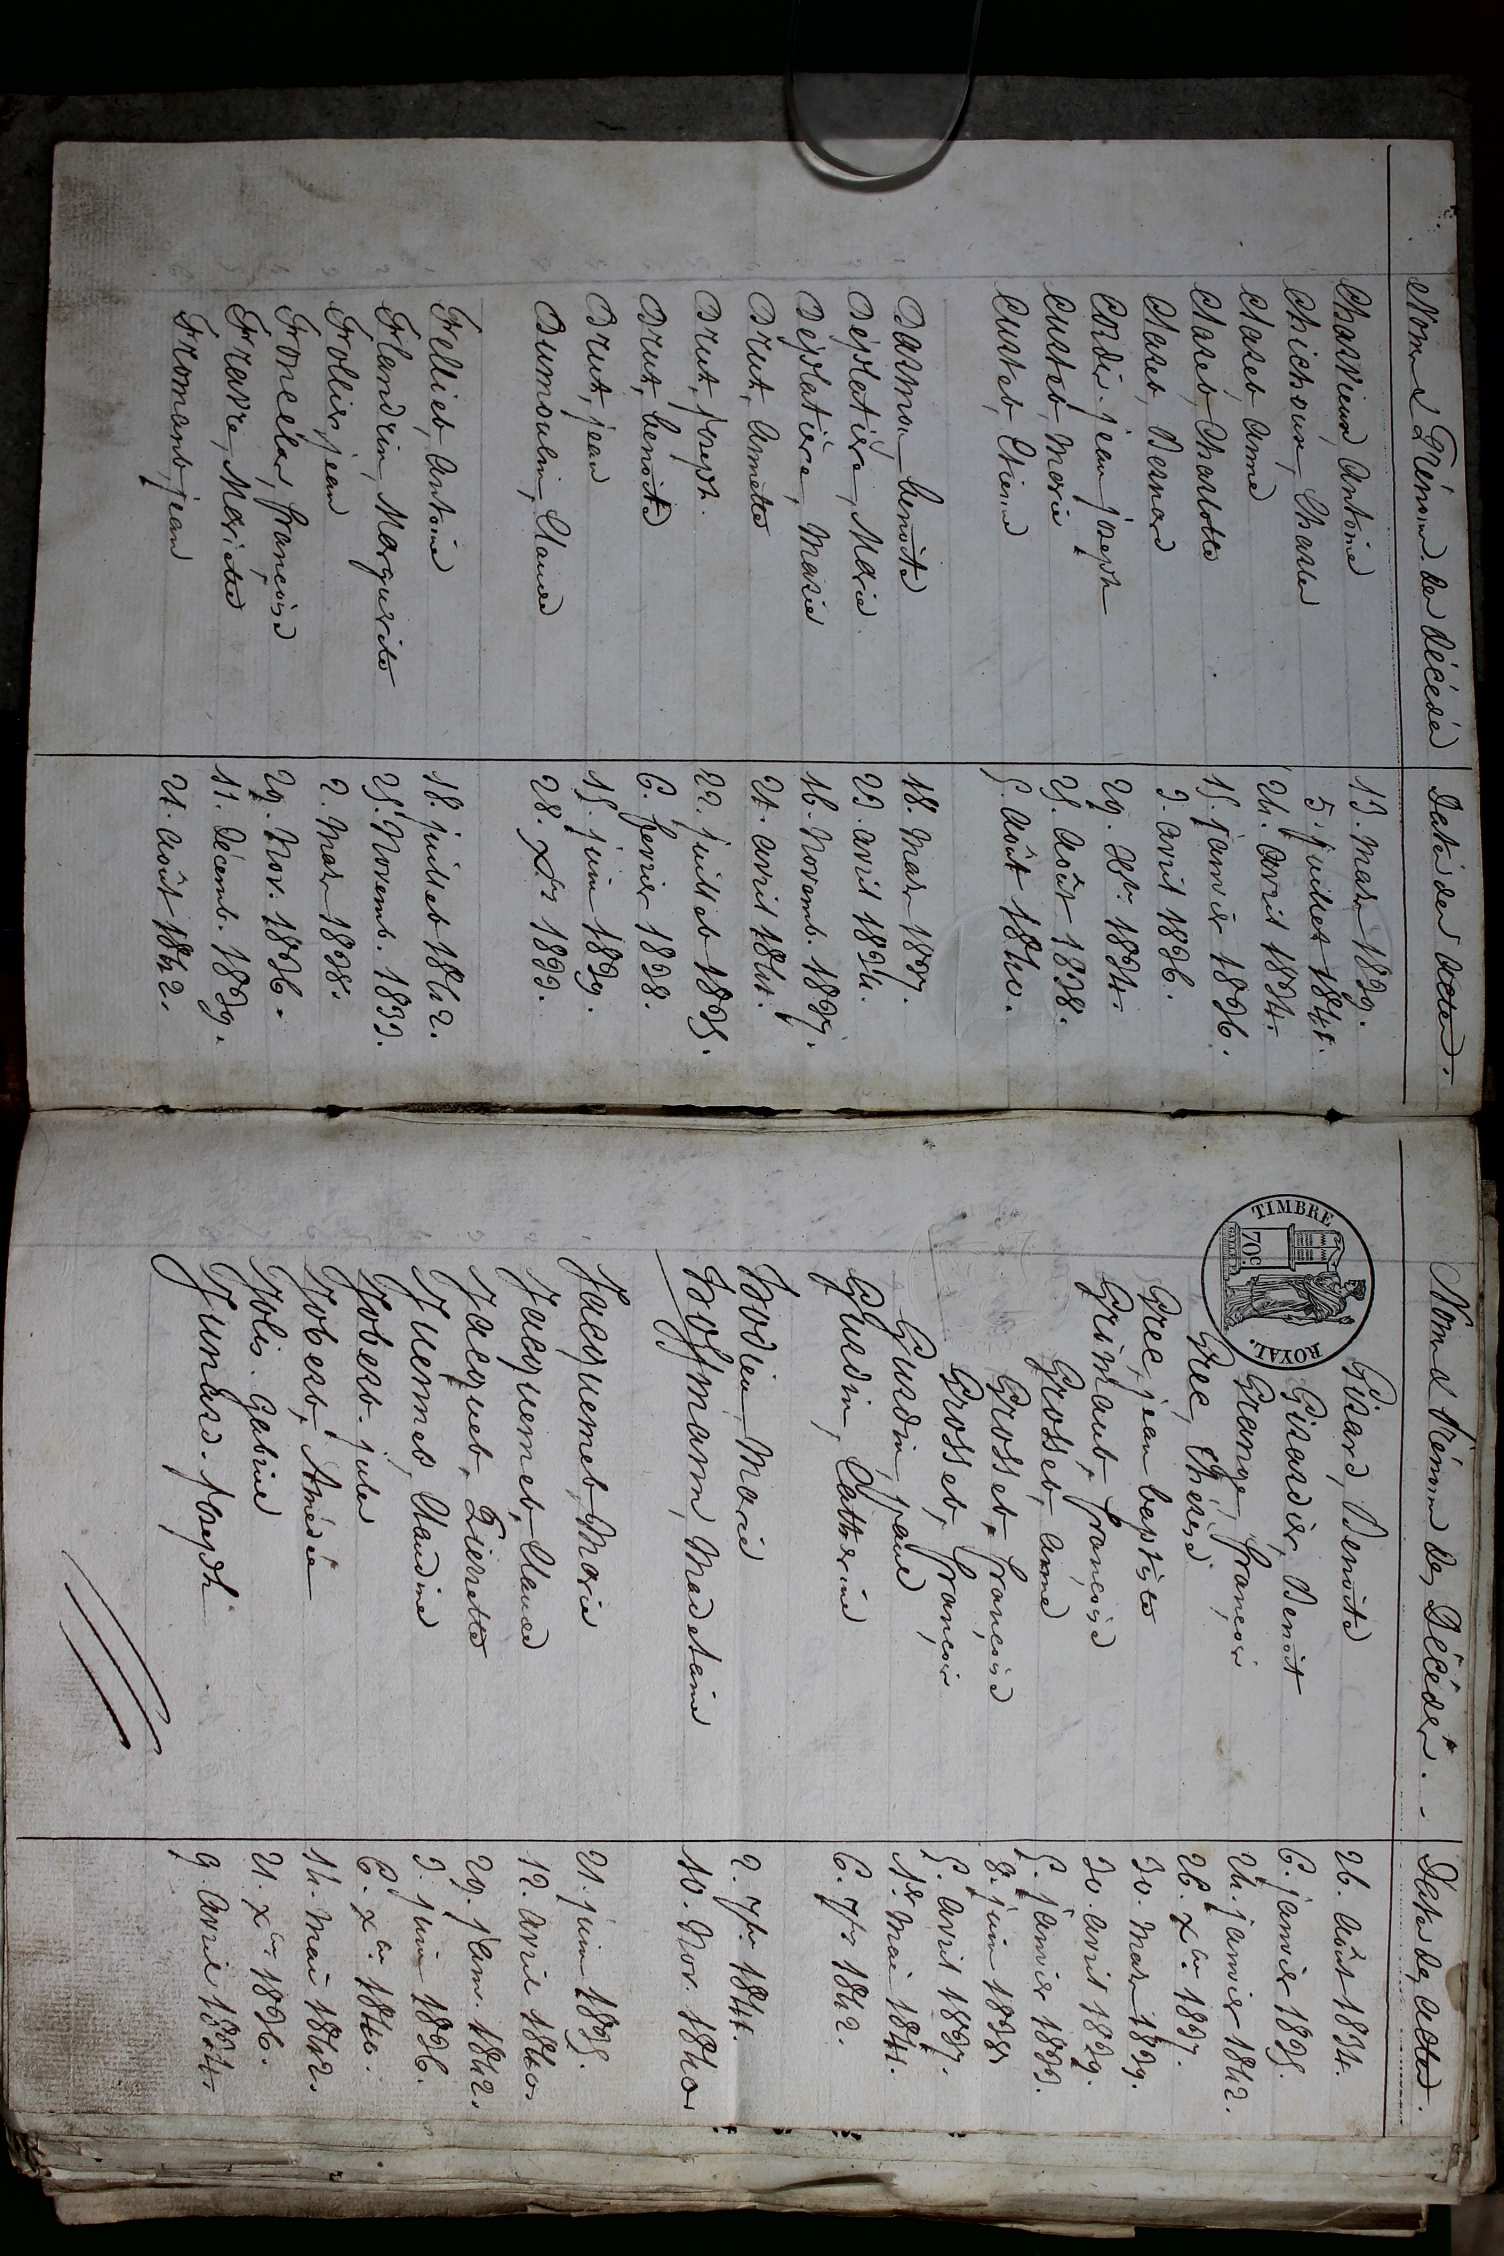 Nom & Prénom des décédés Date des actes.
Charvieux, Antoine 13. Mars 1839.
Chichoux, Charles 5. juillet 1841.
Claret, Anne 24. avril 1834.
Claret, Charlotte 15. janvier 1836.
Claret, Bernard 3. avril 1836.
Cordier. jean joseph 29. Xbre. 1834.
Curtet, Marie 25. Août 1838.
Curtet, Etienne 5. août 1840.
benoîte 18. Mars 1837.
Déplatière, Marie 23. avril 1834.
Déplatière, Marie 16. Novemb. 1837.
Drut, Annette 21. avril 1841.
Drut, joseph. 22. juillet 1835.
Drut, benoîte 6. fevrier 1838.
Drut, jean 15. juin 1839.
Dumoulin, Claude 28. Xbre 1833.
Felliet, Antoine 18. juillet 1842.
Flandrin, Marguerite 25. Novemb. 1833.
Follier, jean 2. Mars 1838.
françoise 29. Nov. 1836.
Fravre, Mariette 11. Décemb. 1839.
Fromant, jean 21. août 1842.
Nom & Prénom des Décédés. Date des actes.
TIMBRE ROYAL
70c
Girard, Benoîte 26. Août 1834.
Girardier, Benoît 6. janvier 1835.
Grange, françois 24. janvier 1842.
Grec, Thérèse 26. Xbre. 1837.
Grec, jean baptiste 30. Mars 1839.
Grimaut, françoise 30. avril 1839.
Grosset, anne 5. janvier 1833.
Grosset, françoise 8. juin 1838
Grosset, françois 5. avril 1837.
Gurdin, jeanne 1er. Mai 1841.
Gurdin, Catherine 6. 7bre 1842.
Hodieu, Marie 2. 7bre 1841.
Hoffmann, Madelaine 10. Nov. 1840
Jacquemet, Marie 21. juin 1835.
Jacquemet, Claude 12. avril 1840.
Jacquet, Pierrette 29. janv. 1842.
Juénnet, Claudine 3. juin 1836.
Jobert. jules 6. Xbre. 1840.
Jobert, Amédée 14. Mai 1842.
Gabriel 21. Xbre. 1836.
joseph 9. Avril 1834.